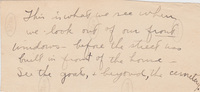 This is what we see when
we look out of our front
windows - before the street was
built in front of the house -
See the goat, & beyond, the cemetery